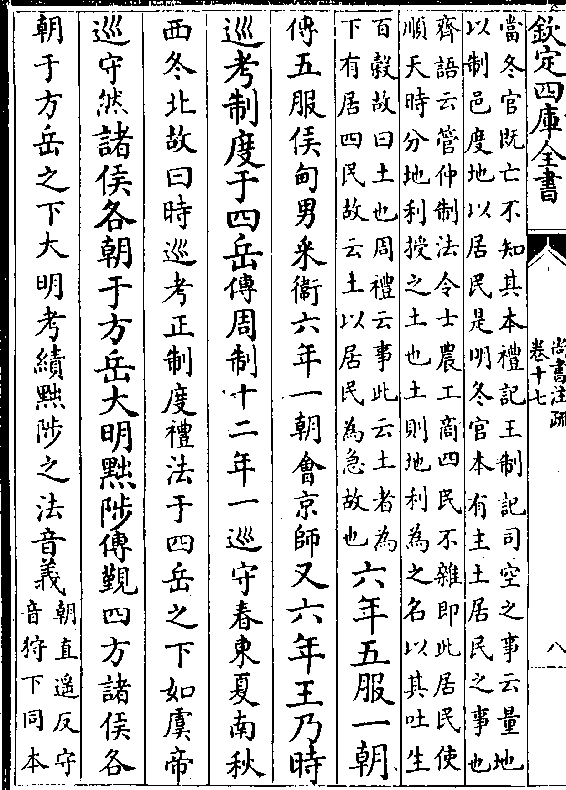 欽定四庫全書
尚書注疏
卷十七
八
當冬官既亡不知其本禮記王制記司空之事云量地
以制邑度地以居民是明冬官本有主土居民之事也
齊語云管仲制法令士農工商四民不雜即此居民使
順天時分地利授之土也土則地利為之名以其吐生
百穀故曰土也周禮云事此云土者為
下有居四民故云土以居民為急故也
六年五服一朝
傳五服侯甸男采衛六年一朝會京師又六年王乃時
巡考制度于四岳傳周制十二年一巡守春東夏南秋
西冬北故曰時巡考正制度禮法于四岳之下如虞帝
巡守然諸侯各朝于方岳大明黜陟傳覲四方諸侯各
朝于方岳之下大明考績黜陟之法音義
朝直遥反守
音狩下同本